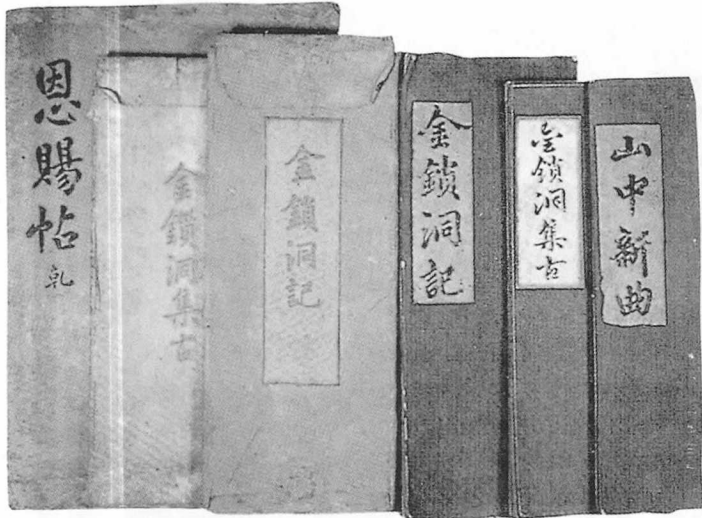 恩賜帖 乹
金鎖洞集古
金鎖洞記
金鎖洞記
金鎖洞集古
山中新曲